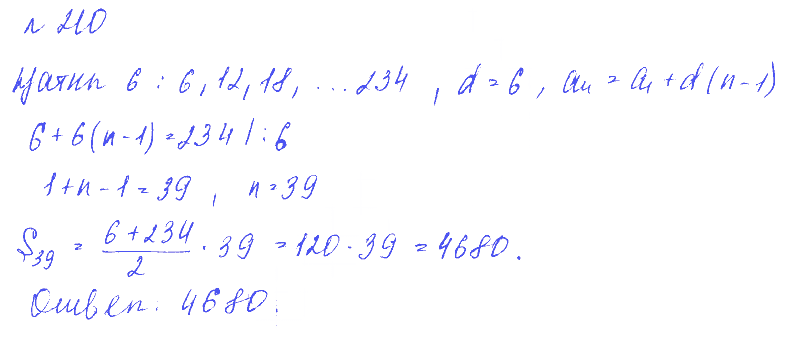 № 210
Кратны 6 : 6, 12, 18, ... 234 , d = 6 , aₙ = a₁ + d(n-1)
6 + 6(n-1) = 234 | : 6
1 + n - 1 = 39 , n = 39
S₃₉ = (6+234)/2 · 39 = 120 · 39 = 4680.
Ответ: 4680.